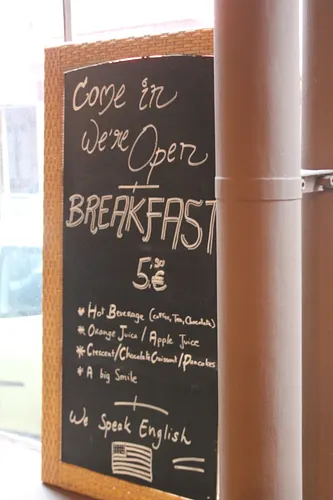 Come in
We're Open
BREAKFAST
5,50 €
* Hot Beverage (coffee, Tea, Chocolate)
* Orange Juice / Apple Juice
* Crescent/Chocolate Croissant/Pancakes
* A big Smile
We Speak English